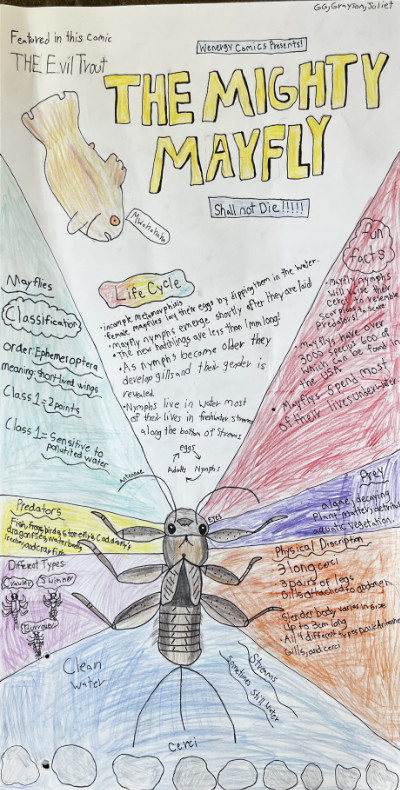 GG, Grayson, Joliet
Featured in this Comic
THE Evil Trout
Wenergy Comics Presents!
THE MIGHTY
MAYFLY
Shall not Die!!!!!
Mwahahaha
Fun
facts
Mayflies
Classification
order: Ephemeroptera
meaning: short lived wings
Class 1 = 2 points
Class 1 = Sensitive to
polluted water
Life Cycle
• incomplete metamorphisis
• female mayflies lay their eggs by dipping them in the water.
• mayfly nymphs emerge shortly after they are laid
• The new hatchlings are less than 1mm long!
• As nymphs become older they
develop gills and their gender is
revealed
• Nymphs live in water most
of their lives in freshwater streams
along the bottom of streams
eggs
Adults Nymphs
• Mayfly nymphs
will raise their
cerci to resemble
Scorpions to scare
Predators
• Mayflies have over
3000 species 600 of
which can be found in
the USA.
• Mayflys spend most
of their lives underwater
Antennae
Eyes
Predators
Fish, frogs, birds, stonefly's Caddisfly's
dragonfly's, waterbeetles
leeches, and crayfish
Prey
algae, decaying
Plant matter, detritus
aquatic vegetation.
Different Types
Crawler Swimmer
Burrower
Physical Discription
3 long cerci
3 pairs of legs
Gills attached to abdomen
Slender body varies in size
Up to 3cm long
• All 4 different types posses antennae
Gills, and cerci
Clean
Water
Streams
Sometimes Still Water
cerci